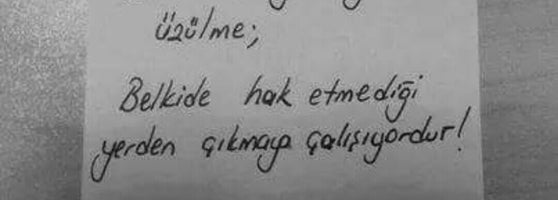 üzülme;
Belkide hak etmediği
yerden çıkmaya çalışıyordur!